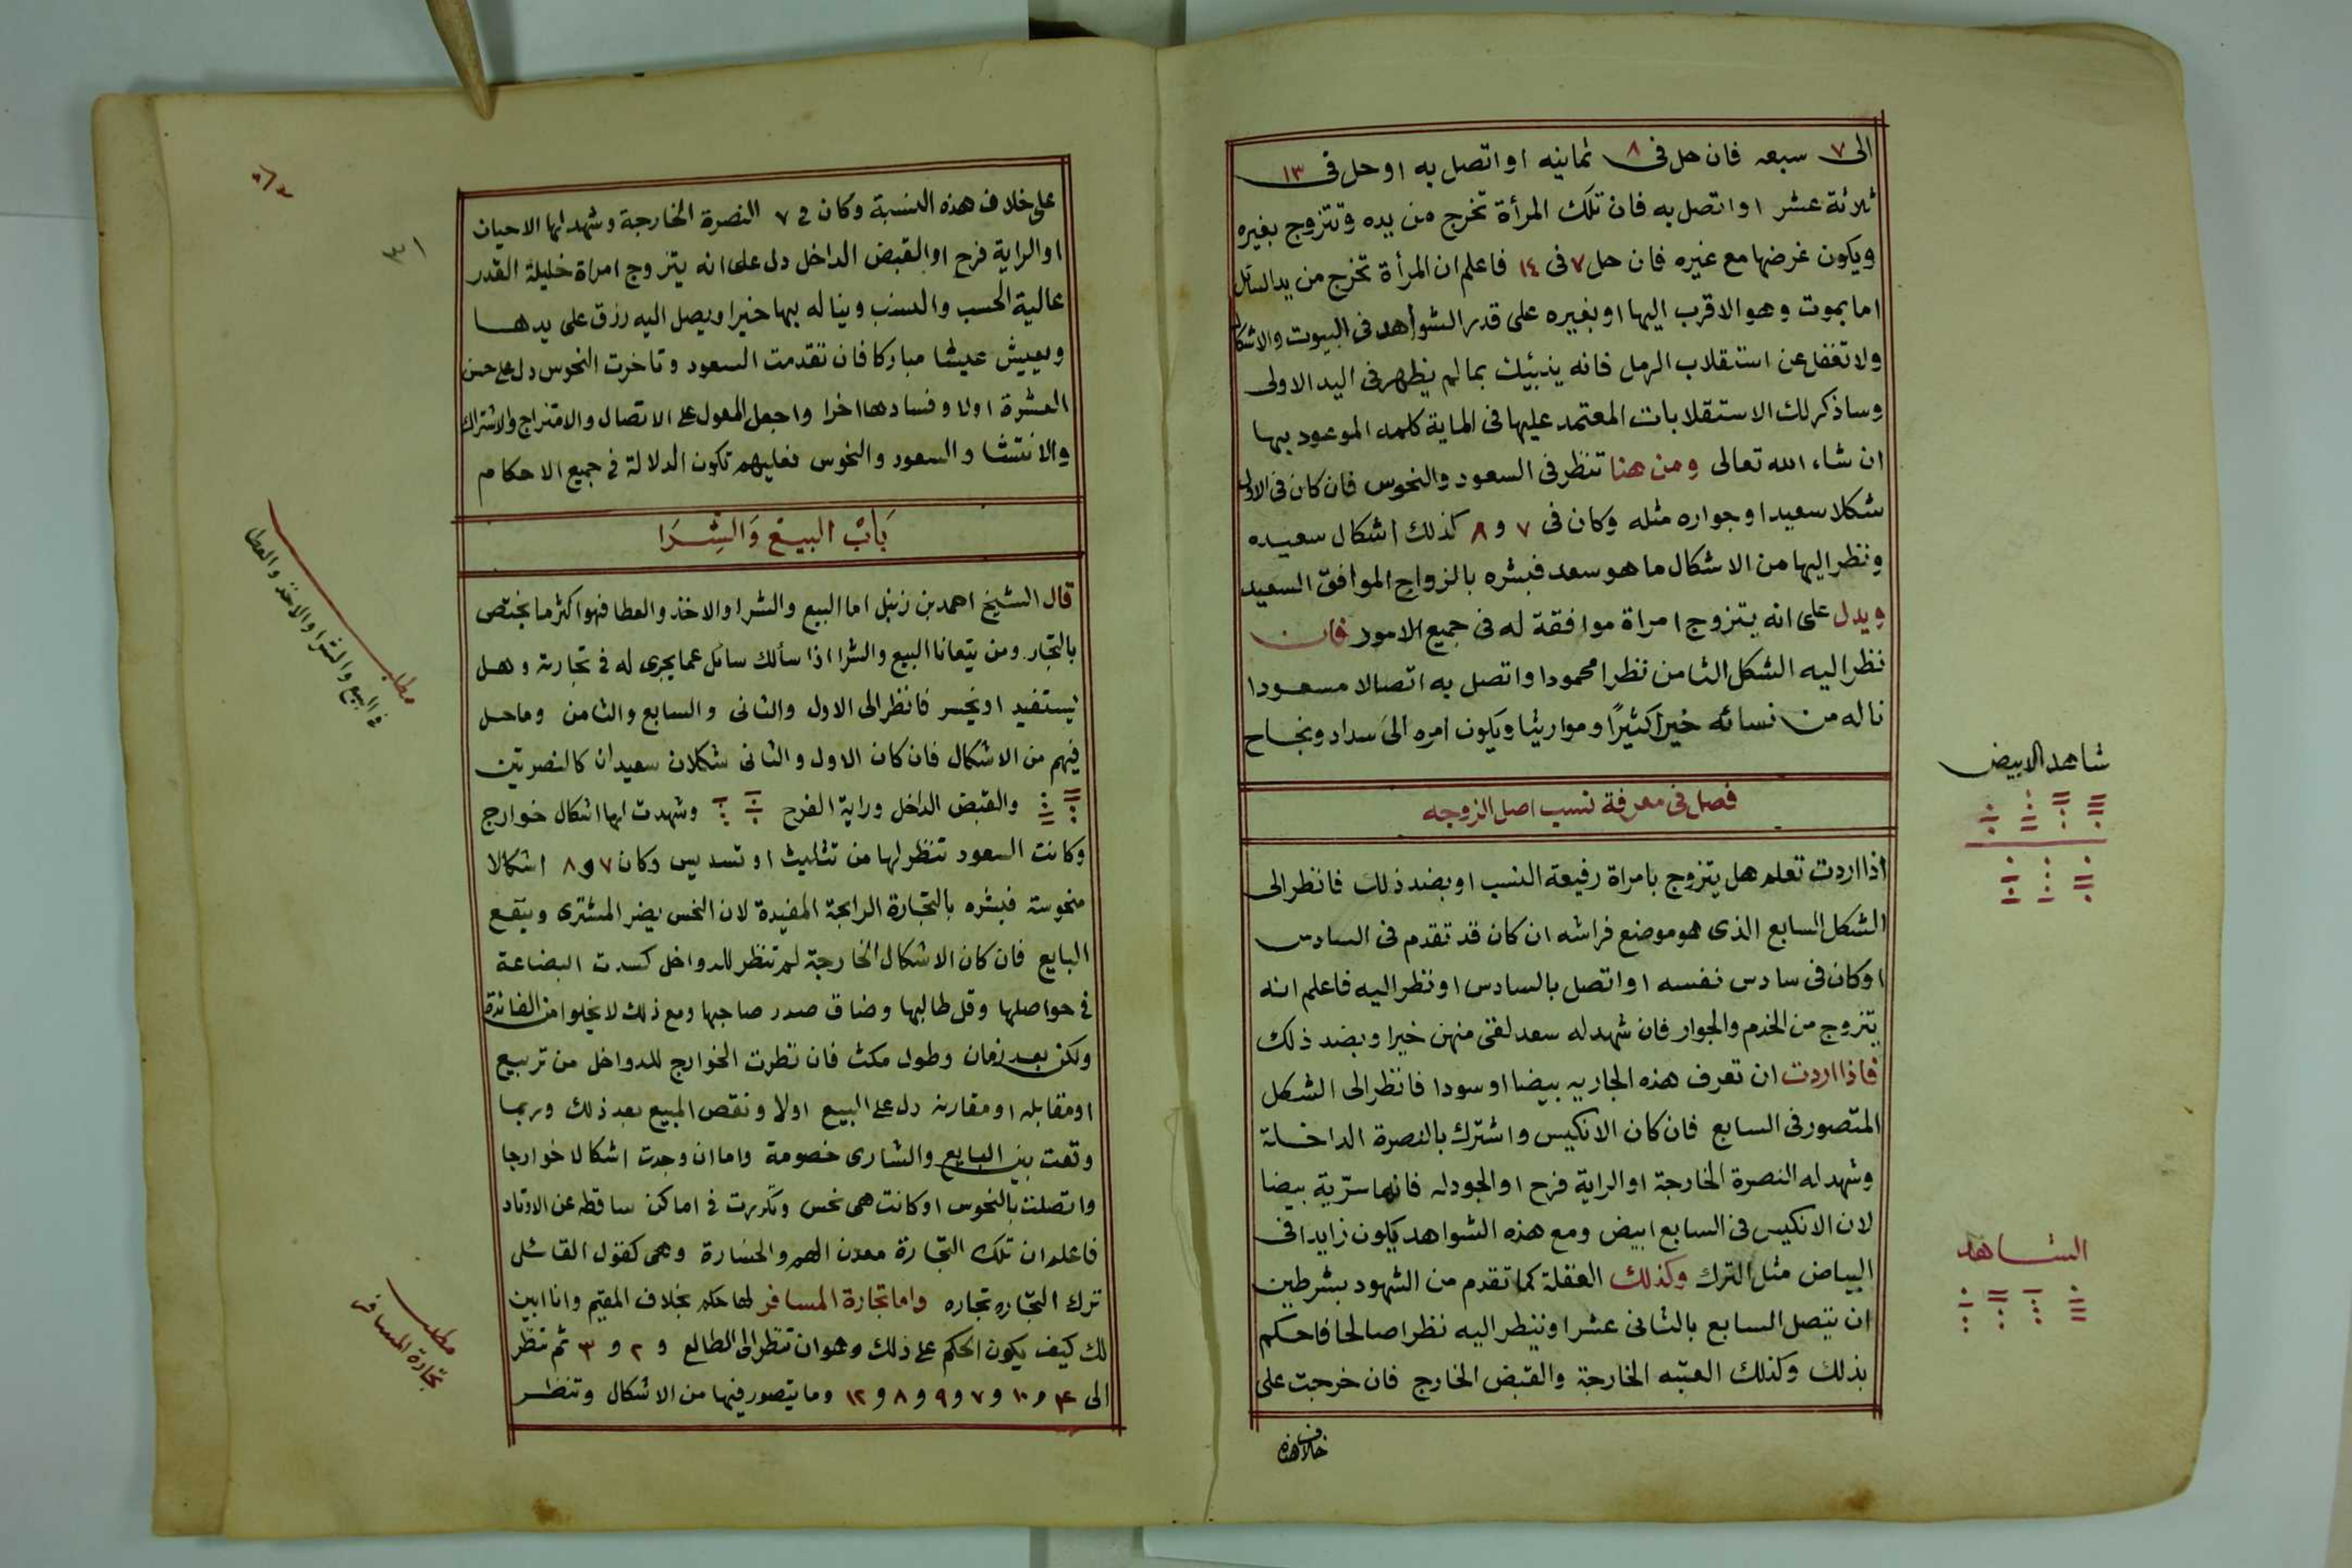 الى ٧ سبعه فان حل فى ٨ ثمانيه او اتصل به او حل فى ١٣
ثلاثة عشر او اتصل به فان تلك المرأة تخرج من يده وتتزوج بغيره
ويكون غرضها مع غيره فان حل ٧ فى ١٤ فاعلم ان المرأة تخرج من يد السائل
اما بموت وهو الاقرب اليها او بغيره على قدر الشواهد فى البيوت والاشكال
ولا تغفل عن استقلاب الرمل فانه ينبئك بما لم يظهر فى اليد الاولى
وساذكر لك الاستقلابات المعتمد عليها فى الماية كلمه الموعود بها
ان شاء الله تعالى ومن هنا تنظر فى السعود والنحوس فان كان فى الاول
شكلا سعيدا وجواره مثله وكان فى ٧ و ٨ كذلك اشكال سعيده
ونظر اليها من الاشكال ما هو سعد فبشره بالزواج الموافق السعيد
ويدل على انه يتزوج امراة موافقة له فى جميع الامور فان
نظر اليه الشكل الثامن نظرا محمودا واتصل به اتصالا مسعودا
ناله من نسائه خيراً كثيرًا ومواريثا ويكون امره الى سداد ونجاح
فصل فى معرفة نسب اصل الزوجه
اذا اردت تعلم هل يتزوج بامراة رفيعة النسب او بضد ذلك فانظر الى
الشكل السابع الذى هو موضع فراشه ان كان قد تقدم فى السادس
او كان فى سادس نفسه او اتصل بالسادس او نظر اليه فاعلم انه
يتزوج من الخدم والجوار فان شهد له سعد لقى منهن خيرا وبضد ذلك
فاذا اردت ان تعرف هذه الجاريه بيضا او سودا فانظر الى الشكل
المتصور فى السابع فان كان الانكيس واشترك بالنصرة الداخلة
وشهد له النصرة الخارجة او الراية فرح او الجودله فانها سرّية بيضا
لان الانكيس فى السابع ابيض ومع هذه الشواهد يكون زايدا فى
البياض مثل الترك وكذلك العقلة كما تقدم من الشهود بشرطين
ان يتصل السابع بالثانى عشر او ينظر اليه نظرا صالحا فاحكم
بذلك وكذلك العتبه الخارجة والقبض الخارج فان خرجت على
خلاف هذه
شاهد الابيض
الشاهد
٣١
على خلاف هذه النسبة وكان فى ٧ النصرة الخارجة وشهد لها الاحيان
او الراية فرح او القبض الداخل دل على انه يتزوج امراة خليلة القدر
عالية الحسب والنسب ويناله بها خيرا ويصل اليه رزق على يدها
ويعيش عيشا مباركا فان تقدمت السعود وتاخرت النحوس دل على حسن
العشرة اولا وفسادها اخرا واجعل المعول على الاتصال والامتزاج والاشتراك
والانتشا والسعود والنحوس فعليهم تكون الدلالة فى جميع الاحكام
بَابُ البيع وَالشِّرَا
قال الشيخ احمد بن زنبل اما البيع والشرا والاخذ والعطا فهو اكثر ما يختص
بالتجار ومن يتعانا البيع والشرا اذا سألك سائل عما يجرى له فى تجارته وهل
يستفيد او يخسر فانظر الى الاول والثانى والسابع والثامن وما حل
فيهم من الاشكال فان كان الاول والثانى شكلان سعيدان كالنصرتين
والقبض الداخل وراية الفرح وشهدت لها اشكال خوارج
وكانت السعود تنظر لها من تثليث او تسديس وكان ٧ و ٨ اشكالا
منحوسة فبشره بالتجارة الرابحة المفيدة لان النحس يضر المشترى وينفع
البايع فان كان الاشكال الخارجة لم تنظر للدواخل كسدت البضاعة
فى حواصلها وقل طالبها وضاق صدر صاحبها ومع ذلك لا يخلوا من الفائدة
ولكن بعد زمان وطول مكث فان نظرت الخوارج للدواخل من تربيع
او مقابله او مقارنه دل على البيع اولا ونقص المبيع بعد ذلك وربما
وقعت بين البايع والشارى خصومة واما ان وجدت اشكالا خوارجا
واتصلت بالنحوس او كانت هى نحس وتكررت فى اماكن ساقطه عن الاوتاد
فاعلم ان تلك التجارة معدن الهم والخسارة وهى كقول القائل
ترك التجاره تجاره واما تجارة المسافر لها حكم بخلاف المقيم وانا ابين
لك كيف يكون الحكم على ذلك وهو ان تنظر الى الطالع و ٢ و ٣ ثم تنظر
الى ۴ و ١٠ و ٧ و ٩ و ٨ و ١٢ وما يتصور فيها من الاشكال وتنظر
مطلب
فى البيع والشرا والاخذ والعطا
مطلب
تجارة المسافر